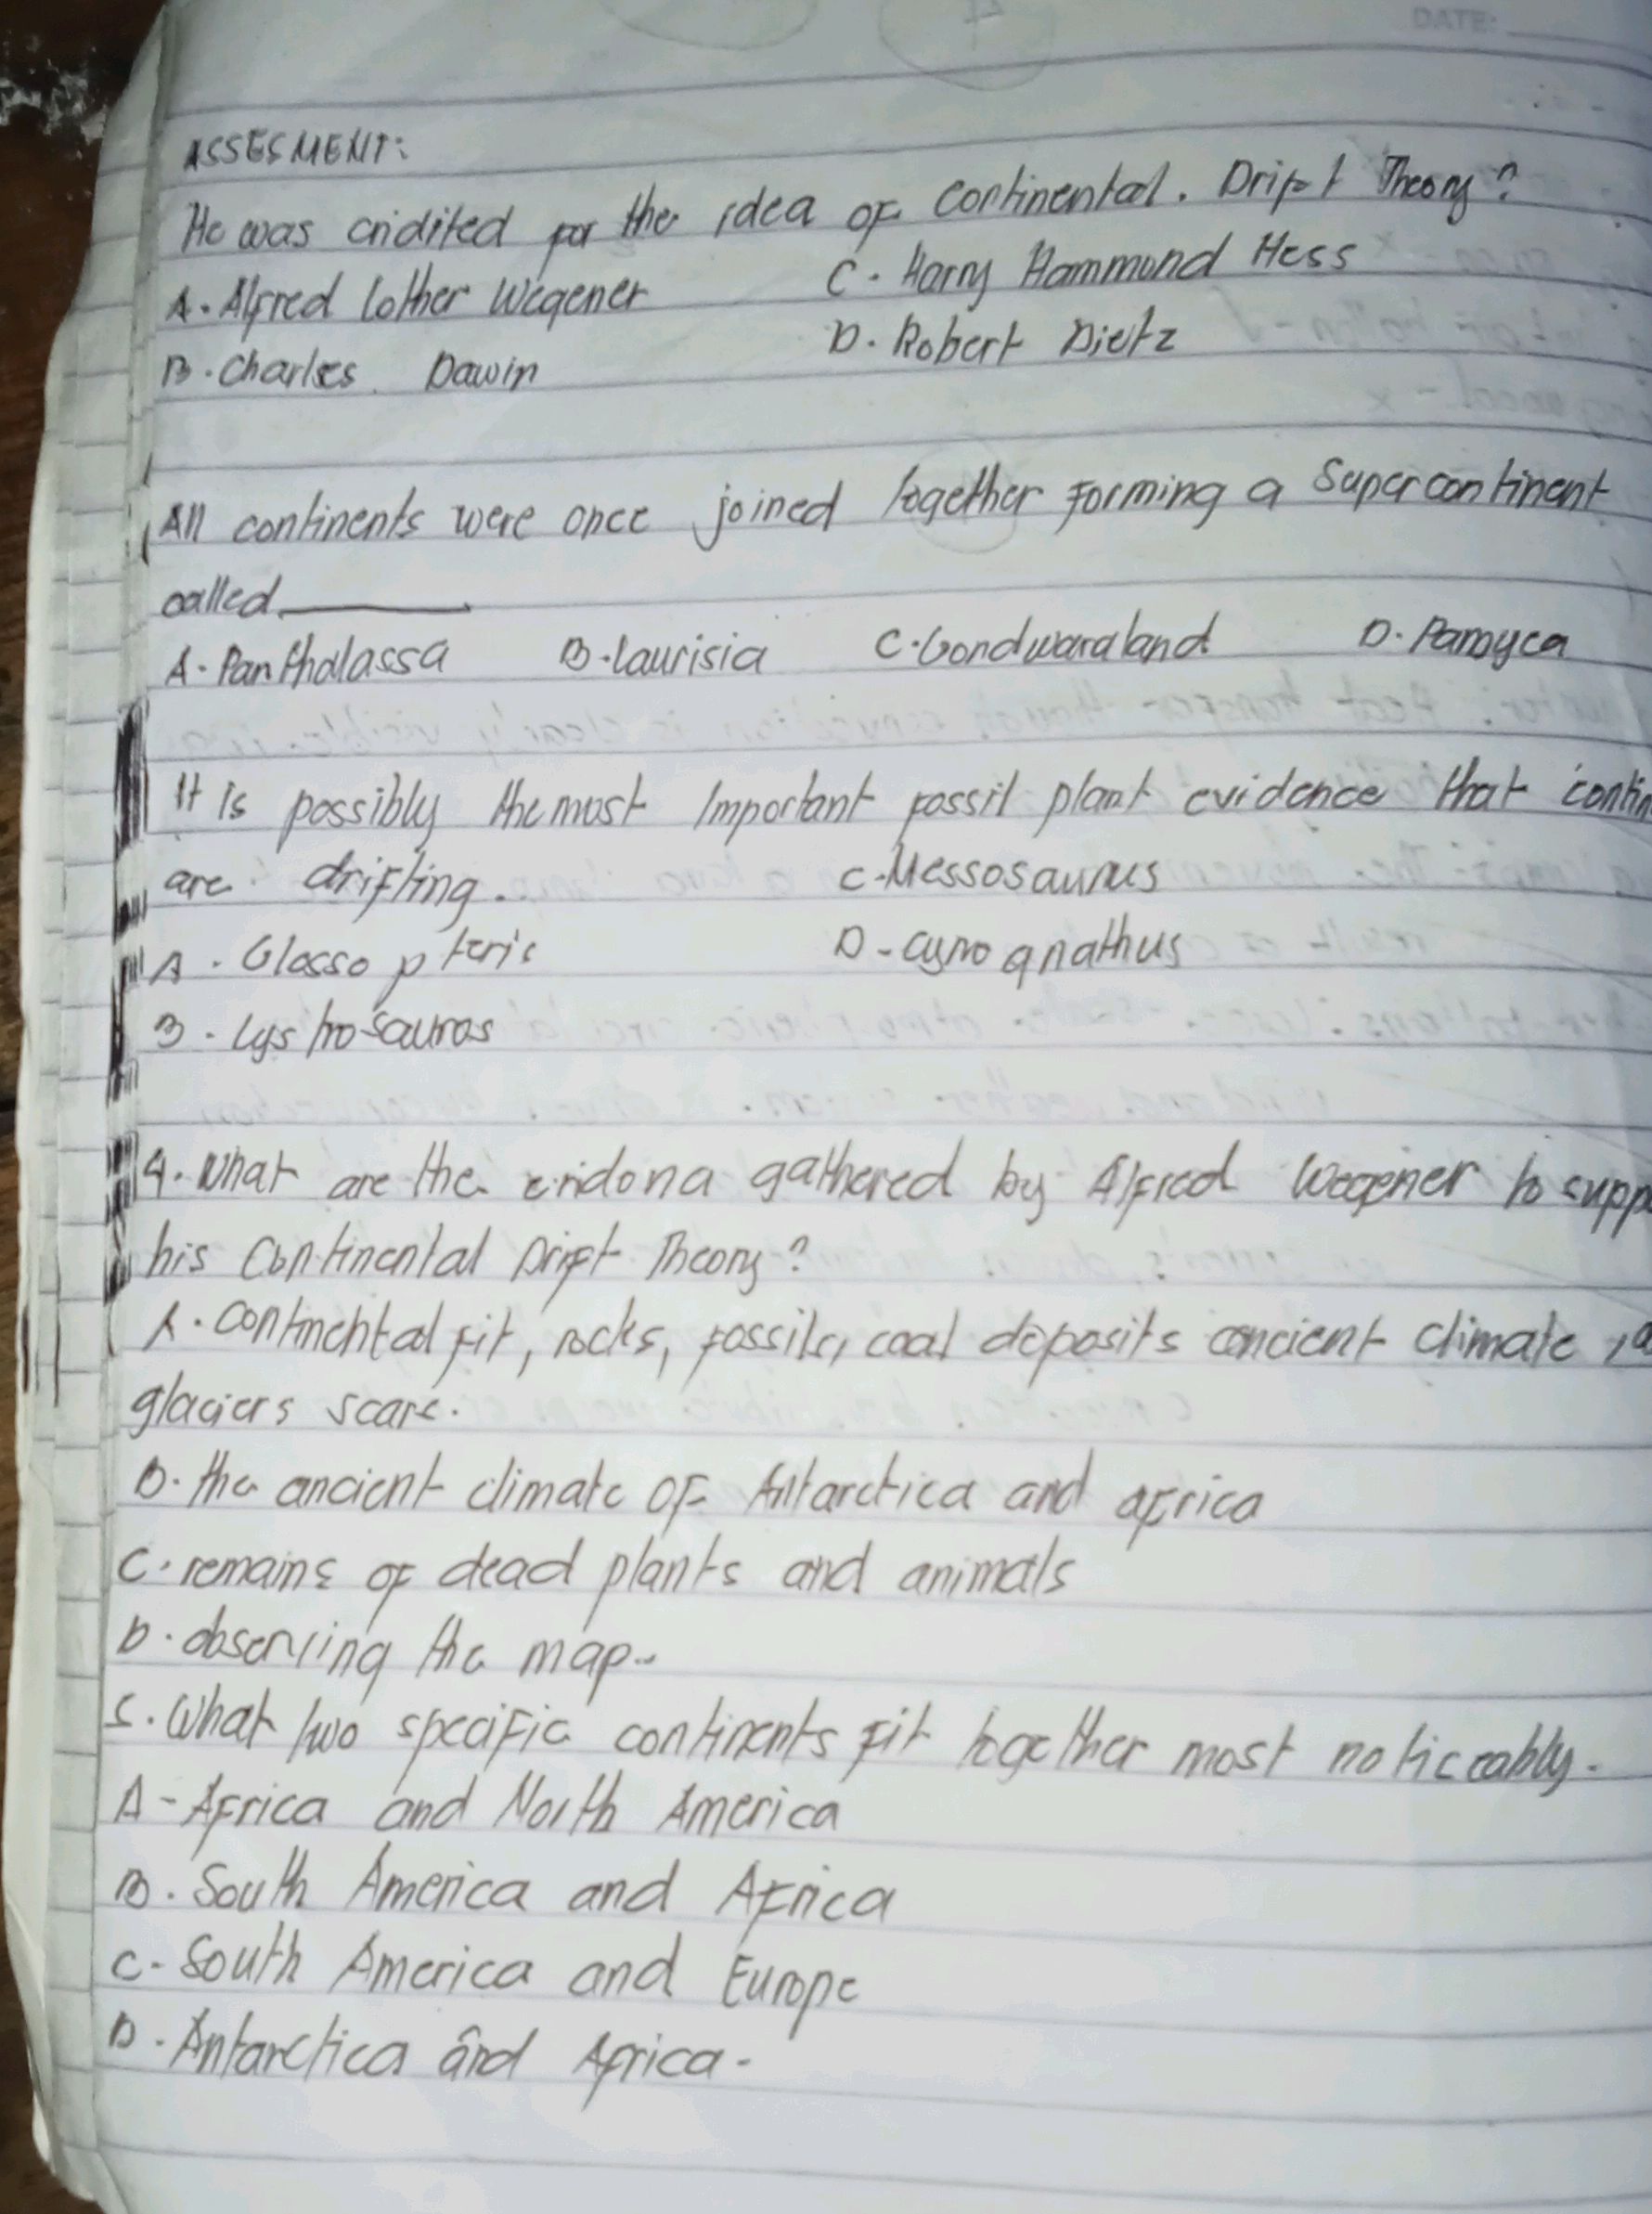 DATE:
ASSESMENT:
He was cridited for the idea of continental. Drift Theory?
A. Alfred Lother Wegener C. Harry Hammond Hess
B. Charles Dawin D. Robert Dietz
All continents were once joined together forming a Supercontinent
called
A. Panthalassa B. Laurisia C. Gondwaraland D. Pangyca
It is possibly the most Important fossil plant evidence that contin
are drifting. C. Messosaurus
A. Glossopteris D - cynognathus
B. Lystrosauros
4. What are the gathered by Alfred Wegener to suppo
his Continental Drift Theory?
A. continental fit, rocks, fossils, coal deposits ancient climate, a
glaciers scars.
B. the ancient climate of Antarctica and africa
C. remains of dead plants and animals
D. observing the map..
5. What two specific continents fit together most noticeably.
A - Africa and North America
B. South America and Africa
C - South America and Europe
D. Antarctica and Africa -